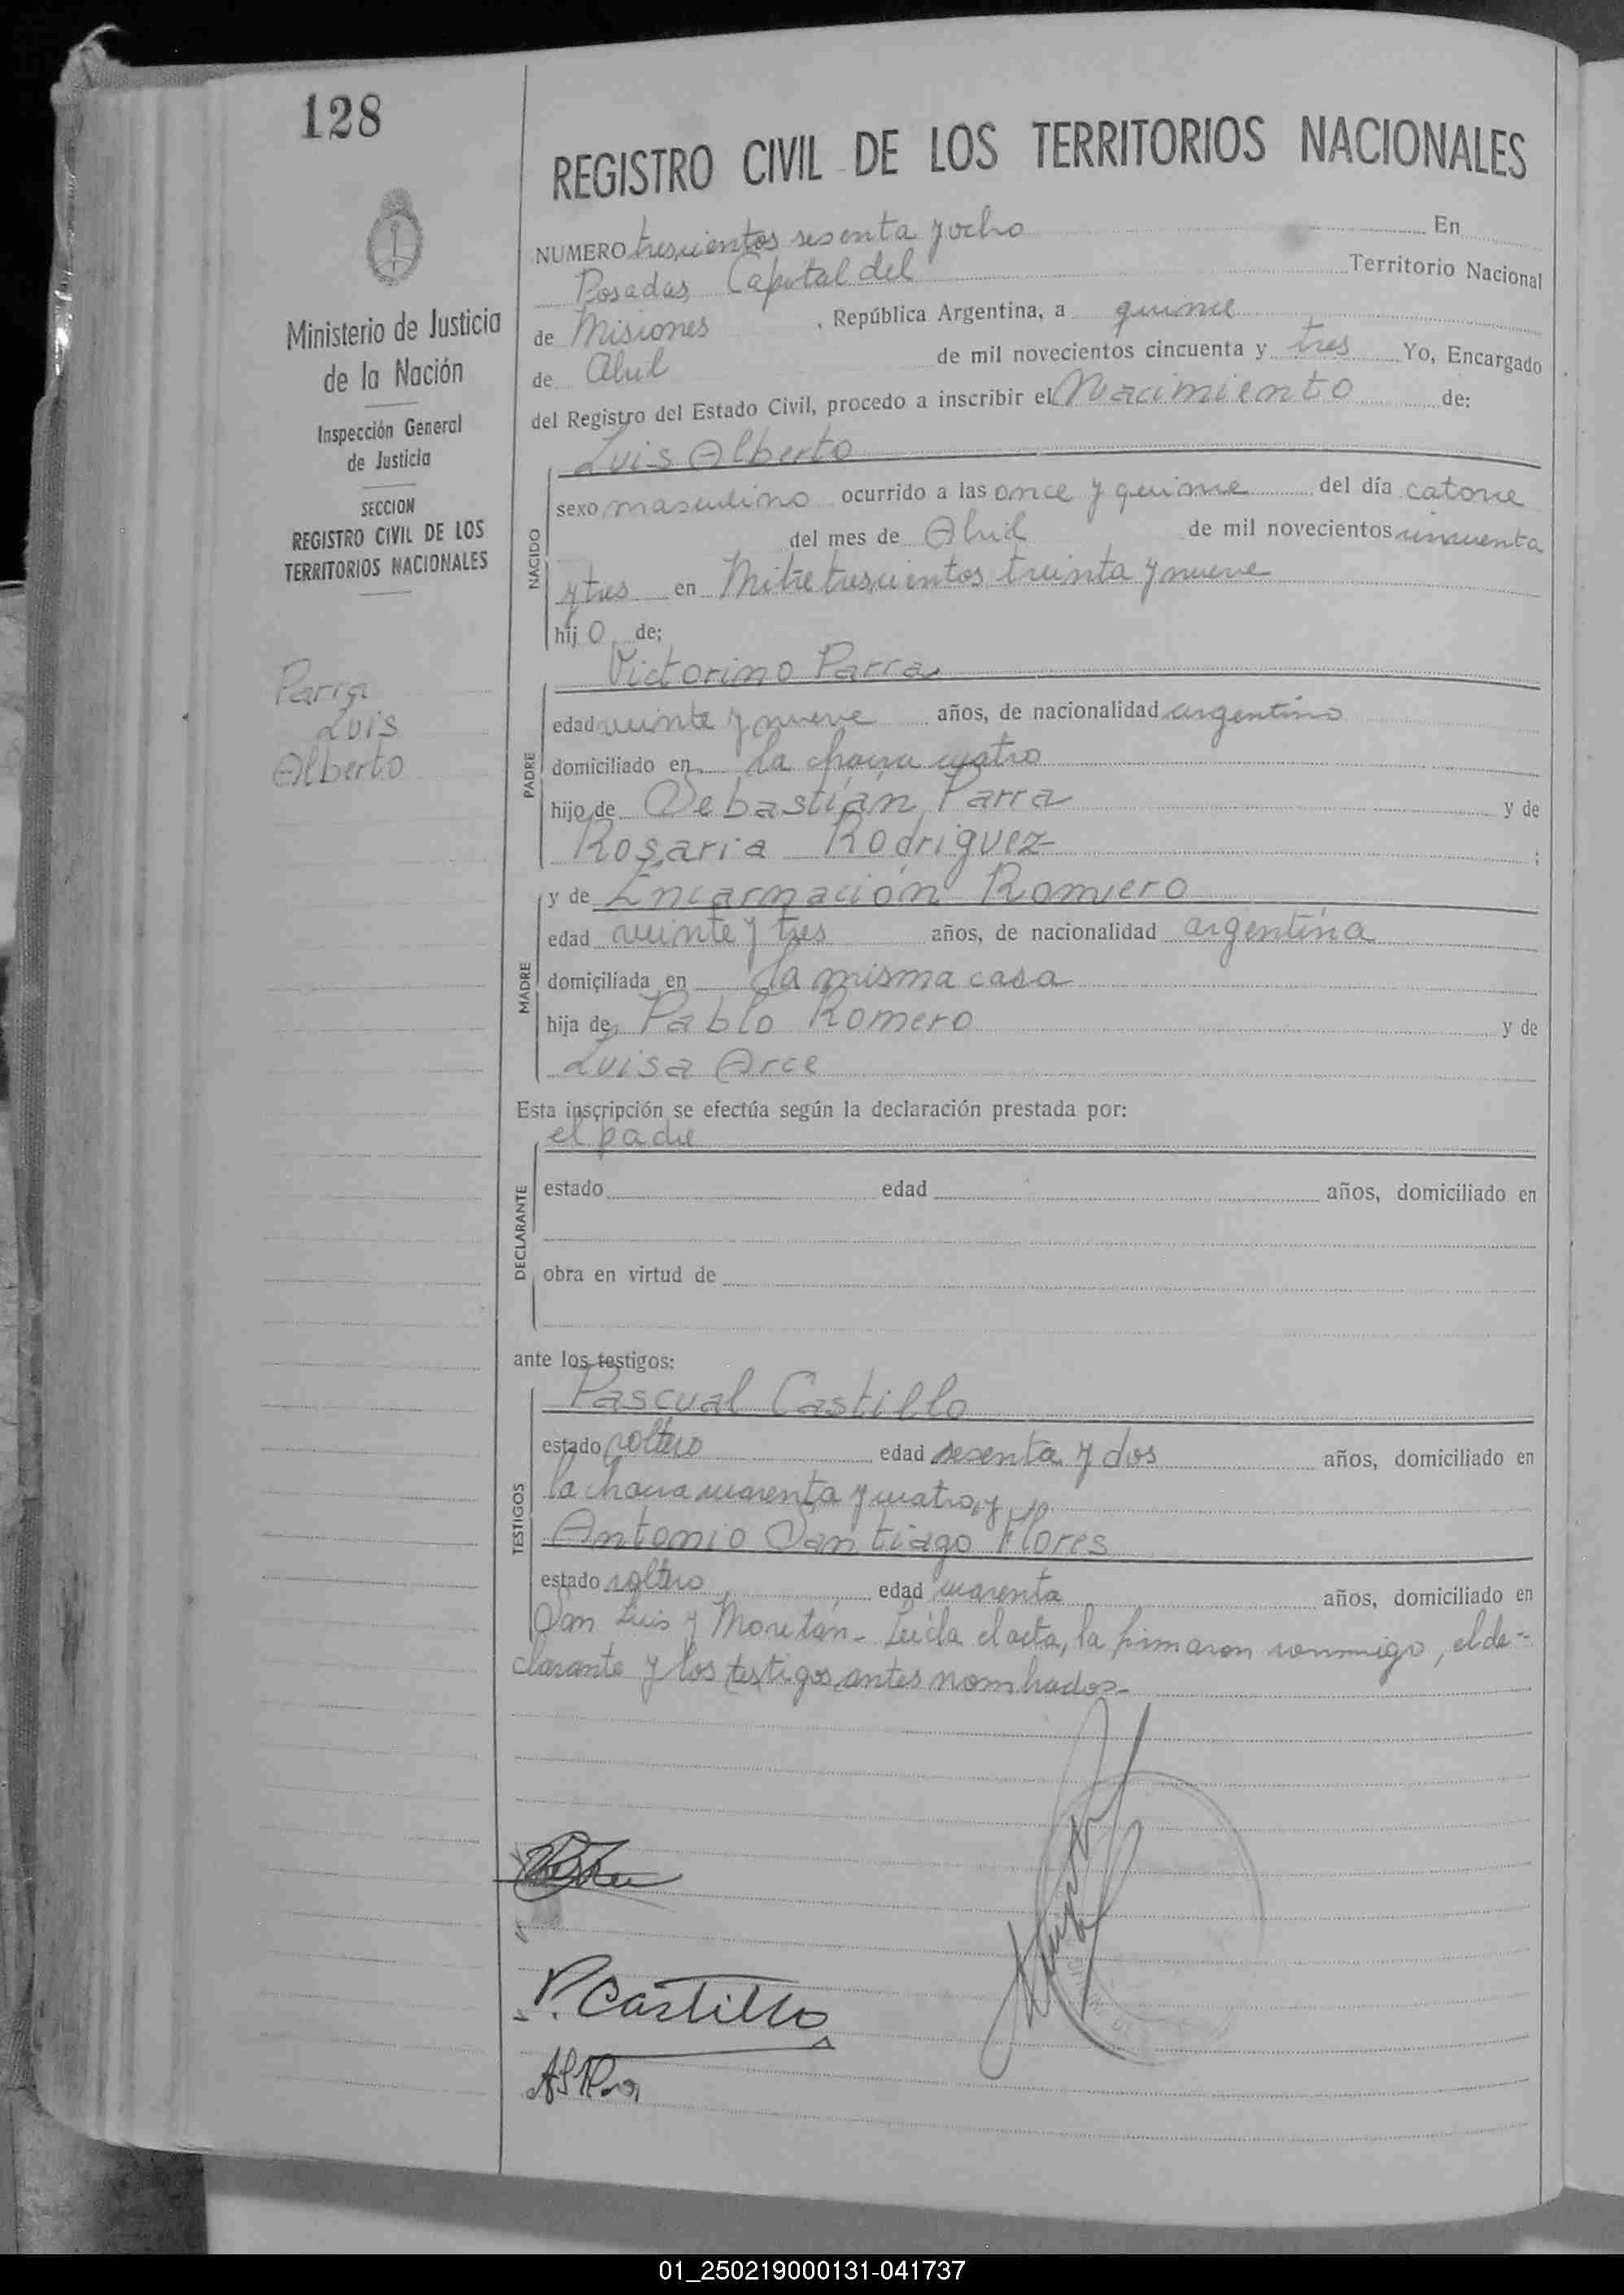 128
REGISTRO CIVIL DE LOS TERRITORIOS NACIONALES
Ministerio de Justicia
de la Nación
Inspección General
de Justicia
SECCION
REGISTRO CIVIL DE LOS
TERRITORIOS NACIONALES
Parra
Luis
Alberto
NUMERO trescientos sesenta y ocho En
Posadas, Capital del Territorio Nacional
de Misiones, República Argentina, a quince
de Abril de mil novecientos cincuenta y tres Yo, Encargado
del Registro del Estado Civil, procedo a inscribir el Nacimiento de:
NACIDO
Luis Alberto
sexo masculino ocurrido a las once y quince del día catorce
del mes de Abril de mil novecientos cincuenta
y tres en Mitre trescientos treinta y nueve
hijo de;
PADRE
Victorino Parra
edad veinte y nueve años, de nacionalidad argentino
domiciliado en la chacra cuatro
hijo de Sebastián Parra y de
Rosaria Rodriguez ;
MADRE
y de Encarnación Romero
edad veinte y tres años, de nacionalidad argentina
domiciliada en la misma casa
hija de Pablo Romero y de
Luisa Arce
Esta inscripción se efectúa según la declaración prestada por:
DECLARANTE
el padre
estado edad años, domiciliado en
obra en virtud de
ante los testigos:
TESTIGOS
Pascual Castillo
estado soltero edad sesenta y dos años, domiciliado en
la chacra cuarenta y cuatro, y
Antonio Santiago Flores
estado soltero edad cuarenta años, domiciliado en
San Luis y Moritán - Leída el acta, la firmaron conmigo, el de-
clarante y los testigos antes nombrados-
P. Castillo
01_250219000131-041737